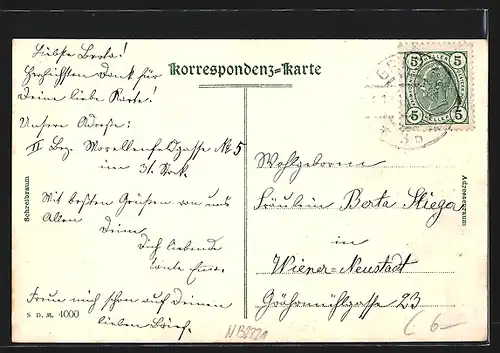 Korrespondenz-Karte
Liebste Berta!
Herzlichsten Dank für
Deine liebe Karte!
Unsere Adresse:
II Bez. No 5
im 31. Bez.
Mit besten Grüßen von uns
Allen Deine
Dich liebende
Tante
Freue mich schon auf Deinen
lieben Brief.
Schreibraum
S D. M. 4000
5 HELLER 5
5 HELLER 5
Wohlgeboren
Fräulein Berta Stieger
in
Wiener-Neustadt
Gröhrmühlgasse 23
Adressraum
6-